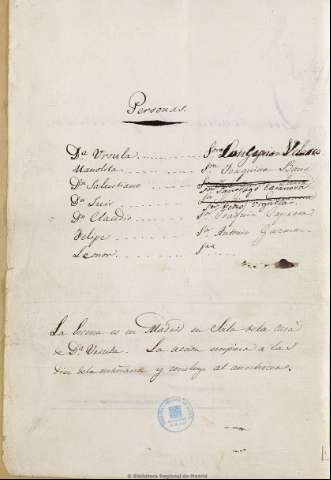 Personas.
Dª Ursula . . . . . . . . Sra Concepcion Velasco
Manolita . . . . . . . . Sra Joaquina Baus
Dn Salustiano . . . . Santiago Casanova
Dn Luis . . . . . . . . Pedro
Dn Claudio . . . . . . Sr Joaquin
Felipe . . . . . . . . Sr Antonio Guzman
Leonor . . . . . . . . Sra
La Escena es en Madrid en Sala de la casa
de Dª Ursula. La accion empieza a las
diez de la mañana y concluye al anochecer.
© Biblioteca Regional de Madrid